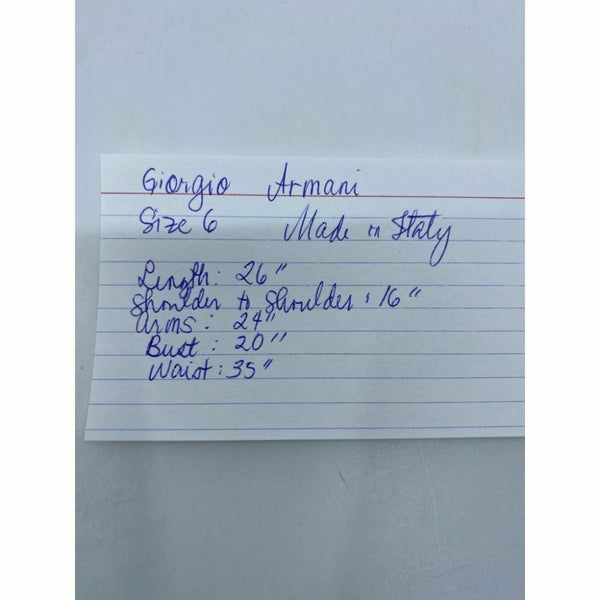 Giorgio Armani
Size 6 Made in Italy
Length: 26"
Shoulder to Shoulder: 16"
Arms: 24"
Bust: 20"
Waist: 35"